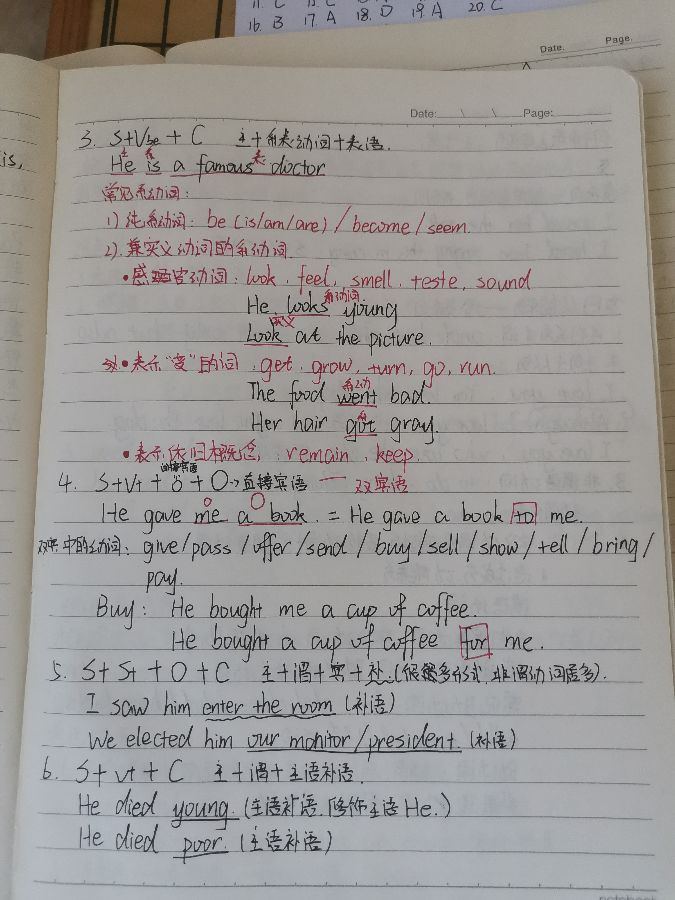 16. B 17. A 18. D 19. A 20. C
Date. Page.
is,
Date: \ \ Page:
3. S+Vbe + C 主+系表动词+表语.
主 系 表
He is a famous doctor
常见系动词:
1) 纯系动词: be (is/am/are) / become / seem.
2). 兼实义动词的系动词.
•感官动词: look. feel, smell. teste, sound
系动词
He looks young
实义
Look at the picture.
•表示"变"的词. get. grow, turn, go, run.
系动
The food went bad.
系
Her hair got gray.
•表示依旧概念: remain. keep
间接宾语
4. S+Vt + O + O→直接宾语 — 双宾语
O O
He gave me a book. = He gave a book to me.
双宾中的动词: give/pass / offer /send / buy/sell /show /tell / bring/
pay.
Buy: He bought me a cup of coffee.
He bought a cup of coffee for me.
5. S+ St + O + C 主+谓+宾+补.(很多形式, 非谓动词居多).
I saw him enter the room (补语)
We elected him our monitor/president. (补语)
6. S + vt + C 主+谓+主语补语.
He died young. (主语补语. 修饰主语 He.)
He died poor. (主语补语)